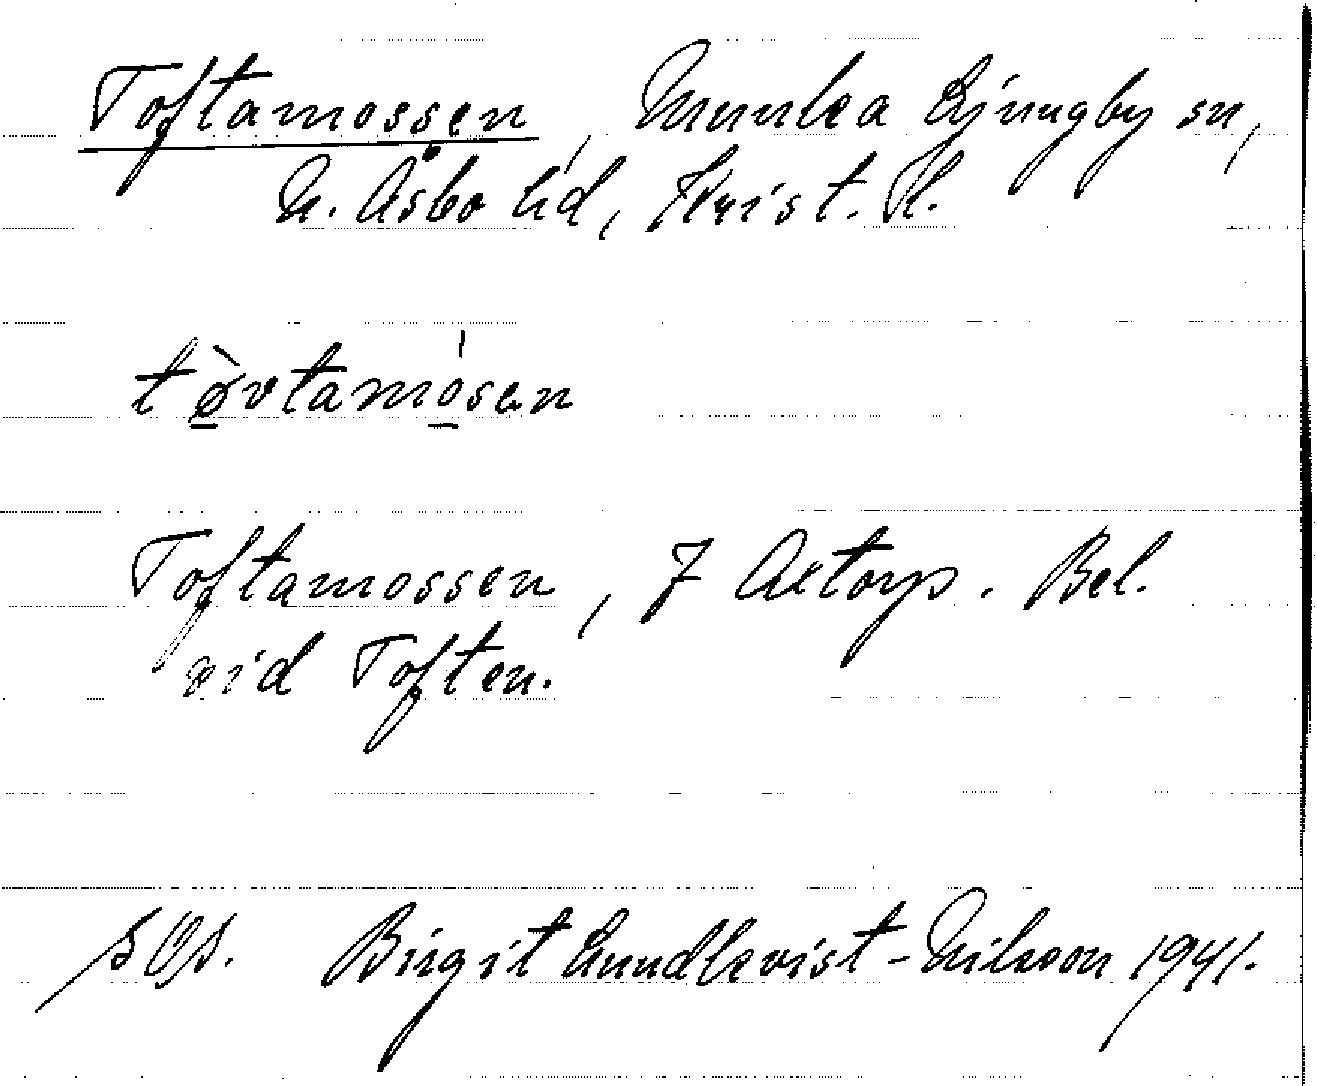 Toftamossen, Munka Ljungby sn,
N. Åsbo hd, Krist. l.
tøvtamósen
Toftamossen, 7 Axtorp. Bel.
vid Toften.
SOS. Birgit Lundkvist-Nilsson 1941.